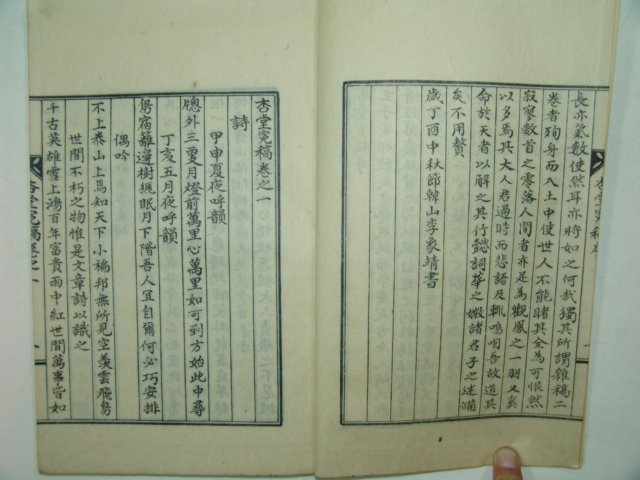 長亦氣數使然耳亦將如之何哉獨其所謂雜稿二
卷者殉身而入土中使世人不能睹其全爲可恨然
寂寥數首之零落人間者亦足爲觀感之一羽又奚
以多爲其大人君過時而悲語及輒嗚咽吾故道其
命於天者以解之其行懿詞華之媺諸君子之述備
矣不用贅
歲丁酉中秋節韓山李象靖書
杏堂寃稿序
杏堂寃稿卷之一
詩
甲申夏夜呼韻
牕外三更月燈前萬里心萬里如可到方始此中尋
丁亥五月夜呼韻
鳥宿籬邊樹抛眠月下階吾人宜自爾何必巧安排
偶吟
不上泰山上焉知天下小褊邦無所見空羨雲飛鳥
世間不朽之物惟是文章詩以識之
千古英雄雪上鴻百年富貴雨中紅世間萬事皆如
杏堂寃稿卷之一
一